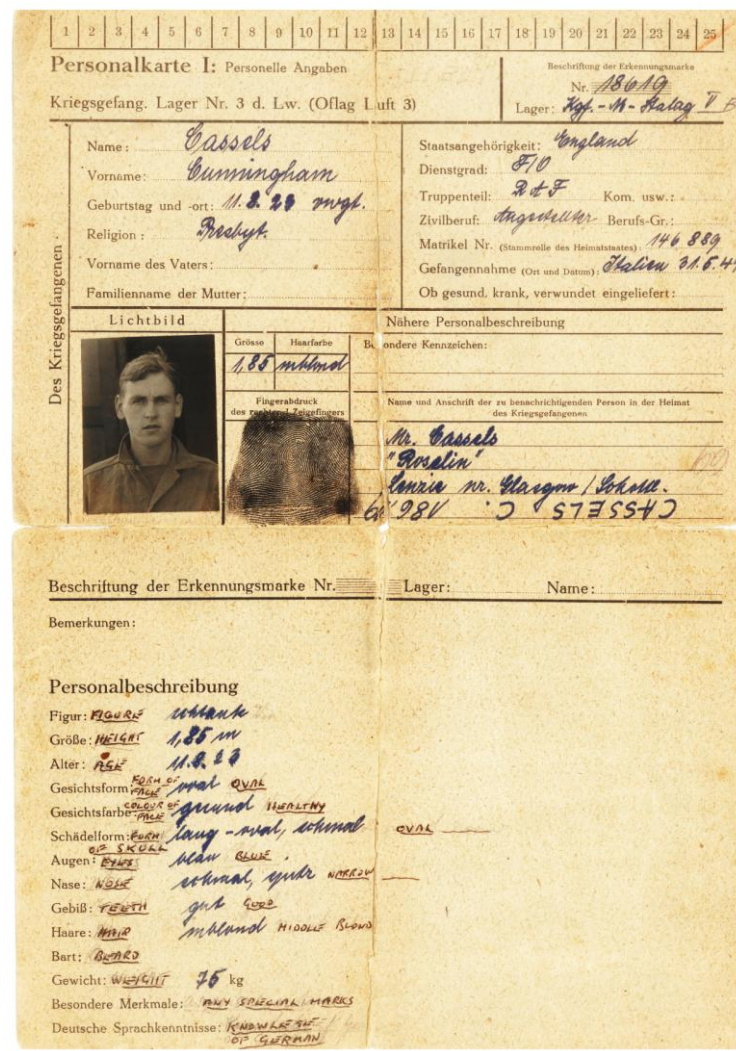 1 2 3 4 5 6 7 8 9 10 11 12 13 14 15 16 17 18 19 20 21 22 23 24 25
Personalkarte I: Personelle Angaben
Kriegsgefang. Lager Nr. 3 d. Lw. (Oflag Luft 3)
Beschriftung der Erkennungsmarke
Nr. 18619
Lager: Kgf.-M-Stalag V
Des Kriegsgefangenen.
Name: Cassels
Vorname: Cunningham
Geburtstag und -ort: 11.2.23 nvgt.
Religion: Presbyt.
Vorname des Vaters:
Familienname der Mutter:
Staatsangehörigkeit: England
Dienstgrad: F/O
Truppenteil: RAF Kom. usw.:
Zivilberuf: Angestellter Berufs-Gr.:
Matrikel Nr. (Stammrolle des Heimatstaates): 146.889
Gefangennahme (Ort und Datum): Italien 31.5.4
Ob gesund, krank, verwundet eingeliefert:
Lichtbild
Grösse Haarfarbe
1,85 mblond
Fingerabdruck
des rechten Zeigefingers
Nähere Personalbeschreibung
Besondere Kennzeichen:
Name und Anschrift der zu benachrichtigenden Person in der Heimat
des Kriegsgefangenen
Mr. Cassels
"Roselin"
Lenzie nr. Glasgow / Schottl.
CASSELS C. 18619
Beschriftung der Erkennungsmarke Nr. Lager: Name:
Bemerkungen:
Personalbeschreibung
Figur: FIGURE schlank
Größe: HEIGHT 1,85 m
Alter: AGE 11.2.23
Gesichtsform: FORM OF FACE oval OVAL
Gesichtsfarbe: COLOUR OF FACE gesund HEALTHY
Schädelform: FORM OF SKULL lang-oval, schmal OVAL
Augen: EYES blau BLUE.
Nase: NOSE schmal, spitz NARROW
Gebiß: TEETH gut GOOD
Haare: HAIR mblond MIDDLE BLOND
Bart: BEARD
Gewicht: WEIGHT 75 kg
Besondere Merkmale: ANY SPECIAL MARKS
Deutsche Sprachkenntnisse: KNOWLEDGE
OF GERMAN